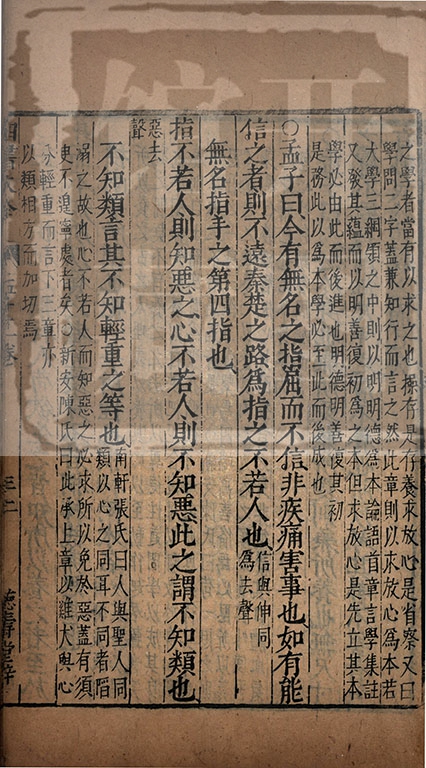 之學者當有以求之也操存是存養求放心是省察又曰
學問二字蓋兼知行而言之然此章則以求放心爲本若
大學三綱領之中則以明明德爲本論語首章言學集註
又發其蘊而以明善復初爲之本但求放心是先立其本
學必由此而後進也明德明善復其初
是務此以爲本學必至此而後成也
○孟子曰今有無名之指屈而不信非疾痛害事也如有能
信之者則不遠秦楚之路爲指之不若人也信與伸同
爲去聲
無名指手之第四指也
指不若人則知惡之心不若人則不知惡此之謂不知類也
惡去
聲
不知類言其不知輕重之等也南軒張氏曰人與聖人同
類以心之同耳不同者陷
溺之故也心不若人而知惡之必求所以免於惡蓋有須
臾不遑寧處者矣○新安陳氏曰此承上章以雞犬與心
分輕重而言下三章亦
以類相方而加切焉
四書大全
德壽堂梓